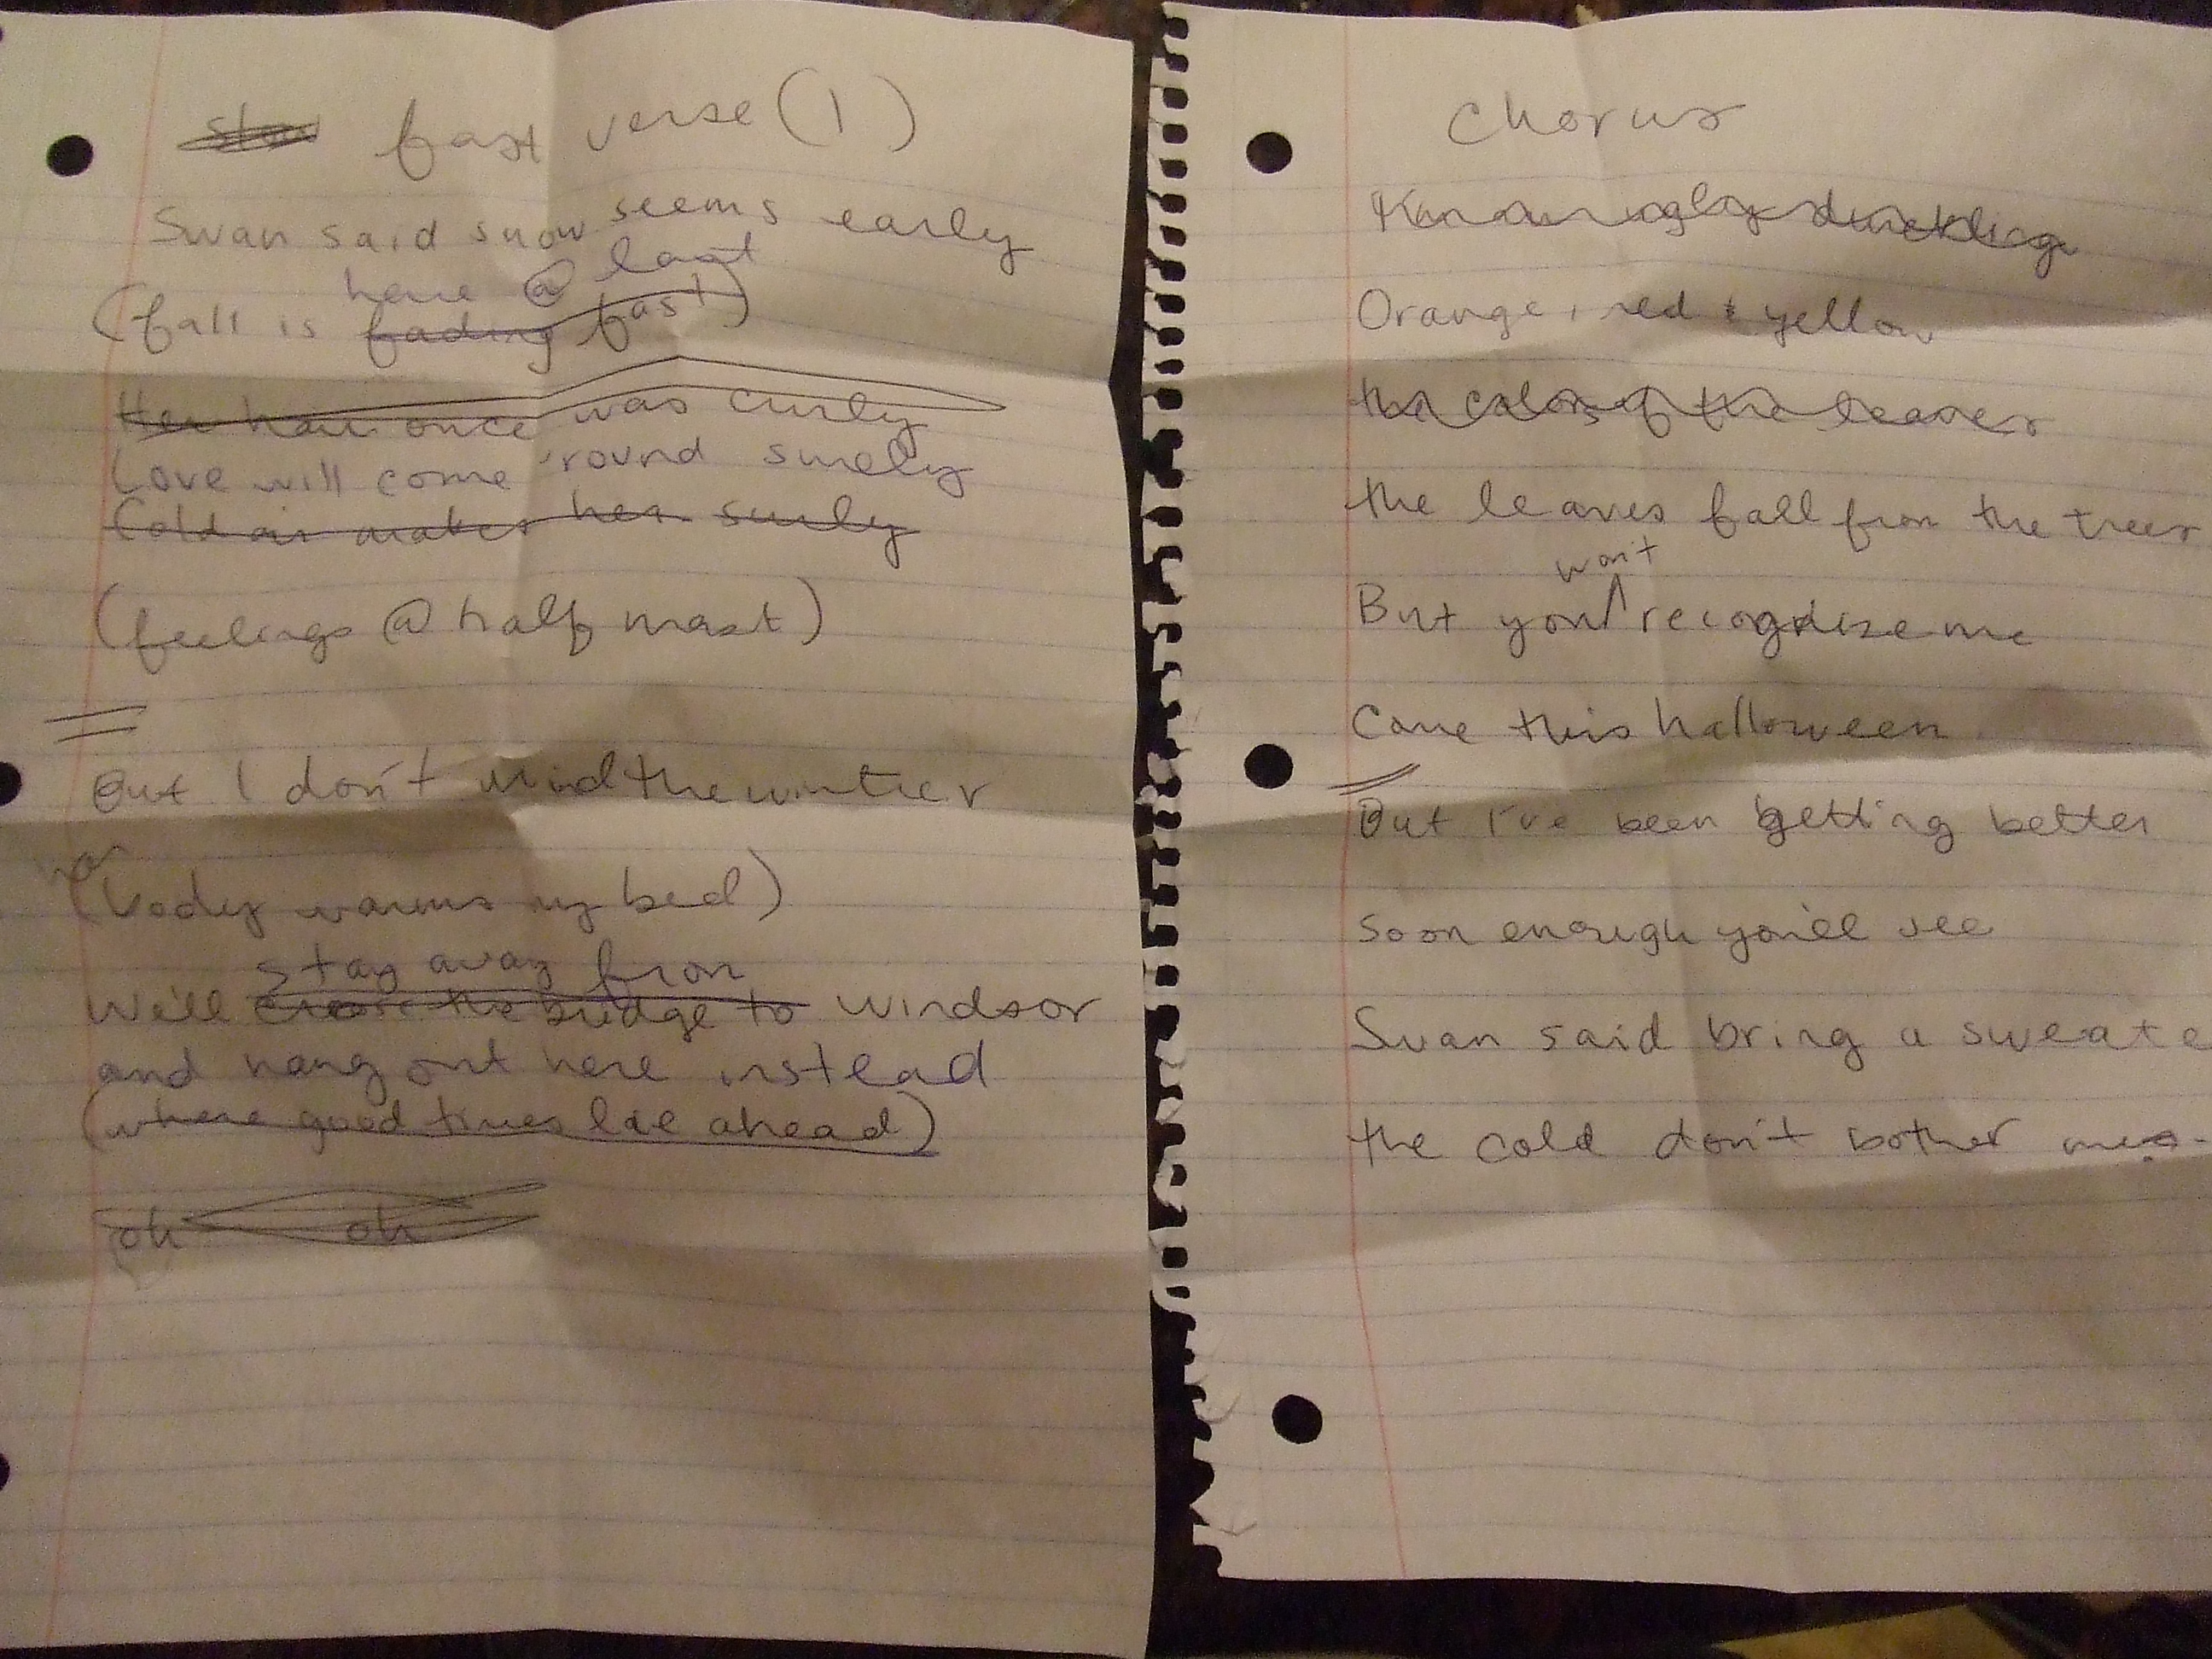 fast verse (1)
Swan said snow seems early
here @ last
(fall is fading fast)
Her hair once was curly
Love will come 'round surely
Cold air makes her surly
(feelings @ half mast)
But I don't mind the winter
(body warms my bed)
stay away from
We'll cross the bridge to Windsor
and hang out here instead
(where good times lie ahead)
oh oh
Chorus
ugly duckling
Orange, red & yellow
the colors of the leaves
the leaves fall from the trees
won't
But you recognize me
Come this halloween
But I've been getting better
soon enough you'll see
Swan said bring a sweate
the cold don't bother me